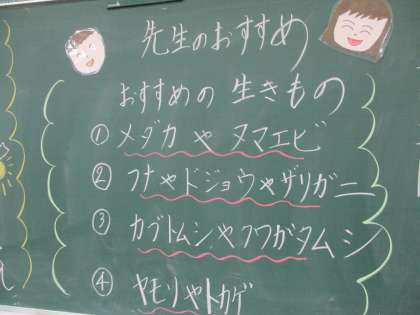 先生のおすすめ
おすすめの生きもの
① メダカやヌマエビ
② フナやドジョウやザリガニ
③ カブトムシやクワガタムシ
④ ヤモリやトカゲ